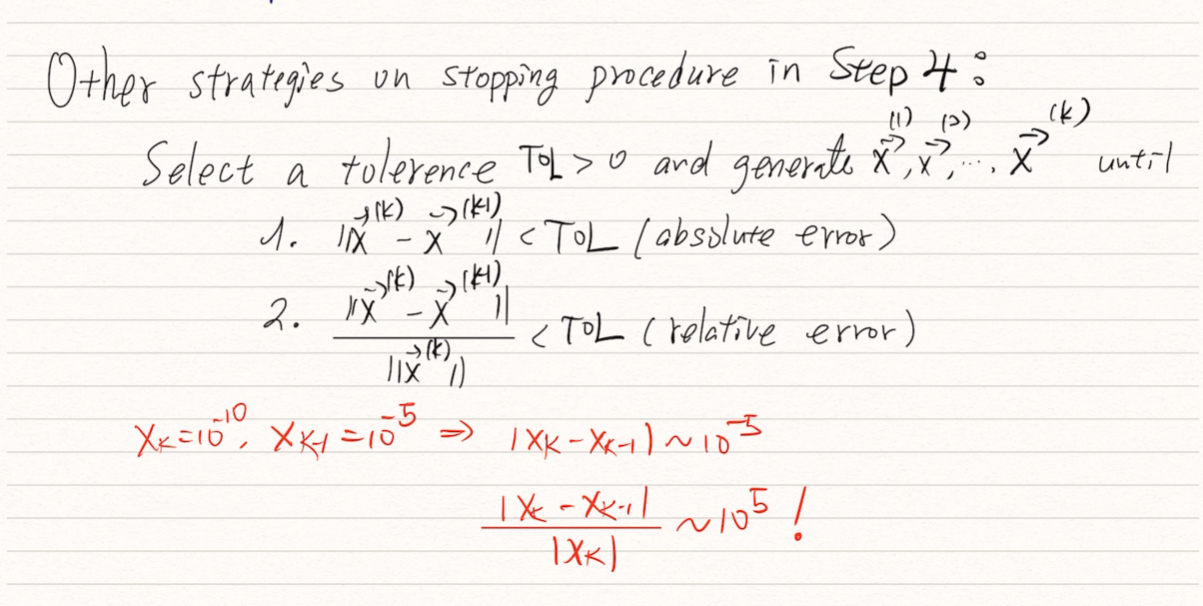 Other strategies on stopping procedure in Step 4:
Select a tolerence TOL > 0 and generate x⃗^(1), x⃗^(2), ..., x⃗^(k) until
1. ||x⃗^(k) - x⃗^(k-1)|| < TOL (absolute error)
2. ||x⃗^(k) - x⃗^(k-1)|| / ||x⃗^(k)|| < TOL (relative error)
x_k = 10^-10, x_k-1 = 10^-5 ⇒ |x_k - x_k-1| ~ 10^-5
|x_k - x_k-1| / |x_k| ~ 10^5 !